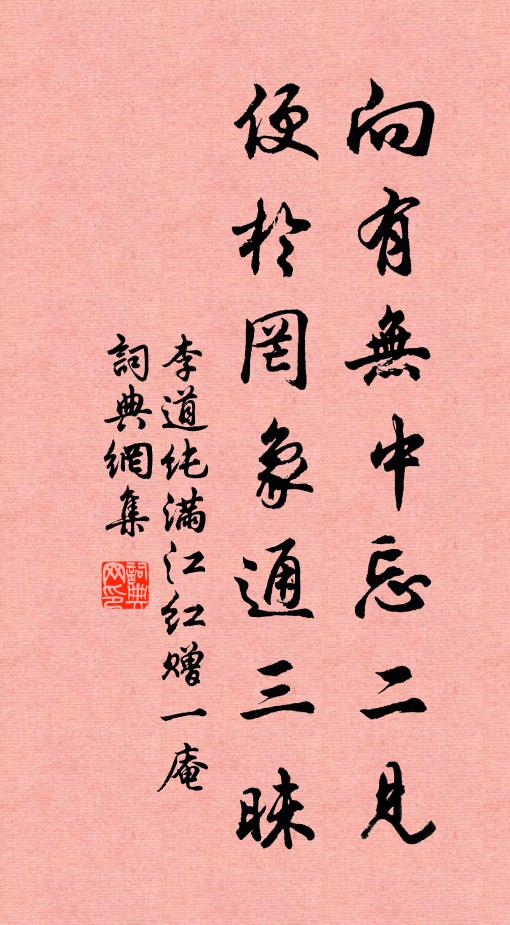 向有無中忘二見
便於罔象通三昧
李道纯满江红赠一庵
詞典網集
詞典网印